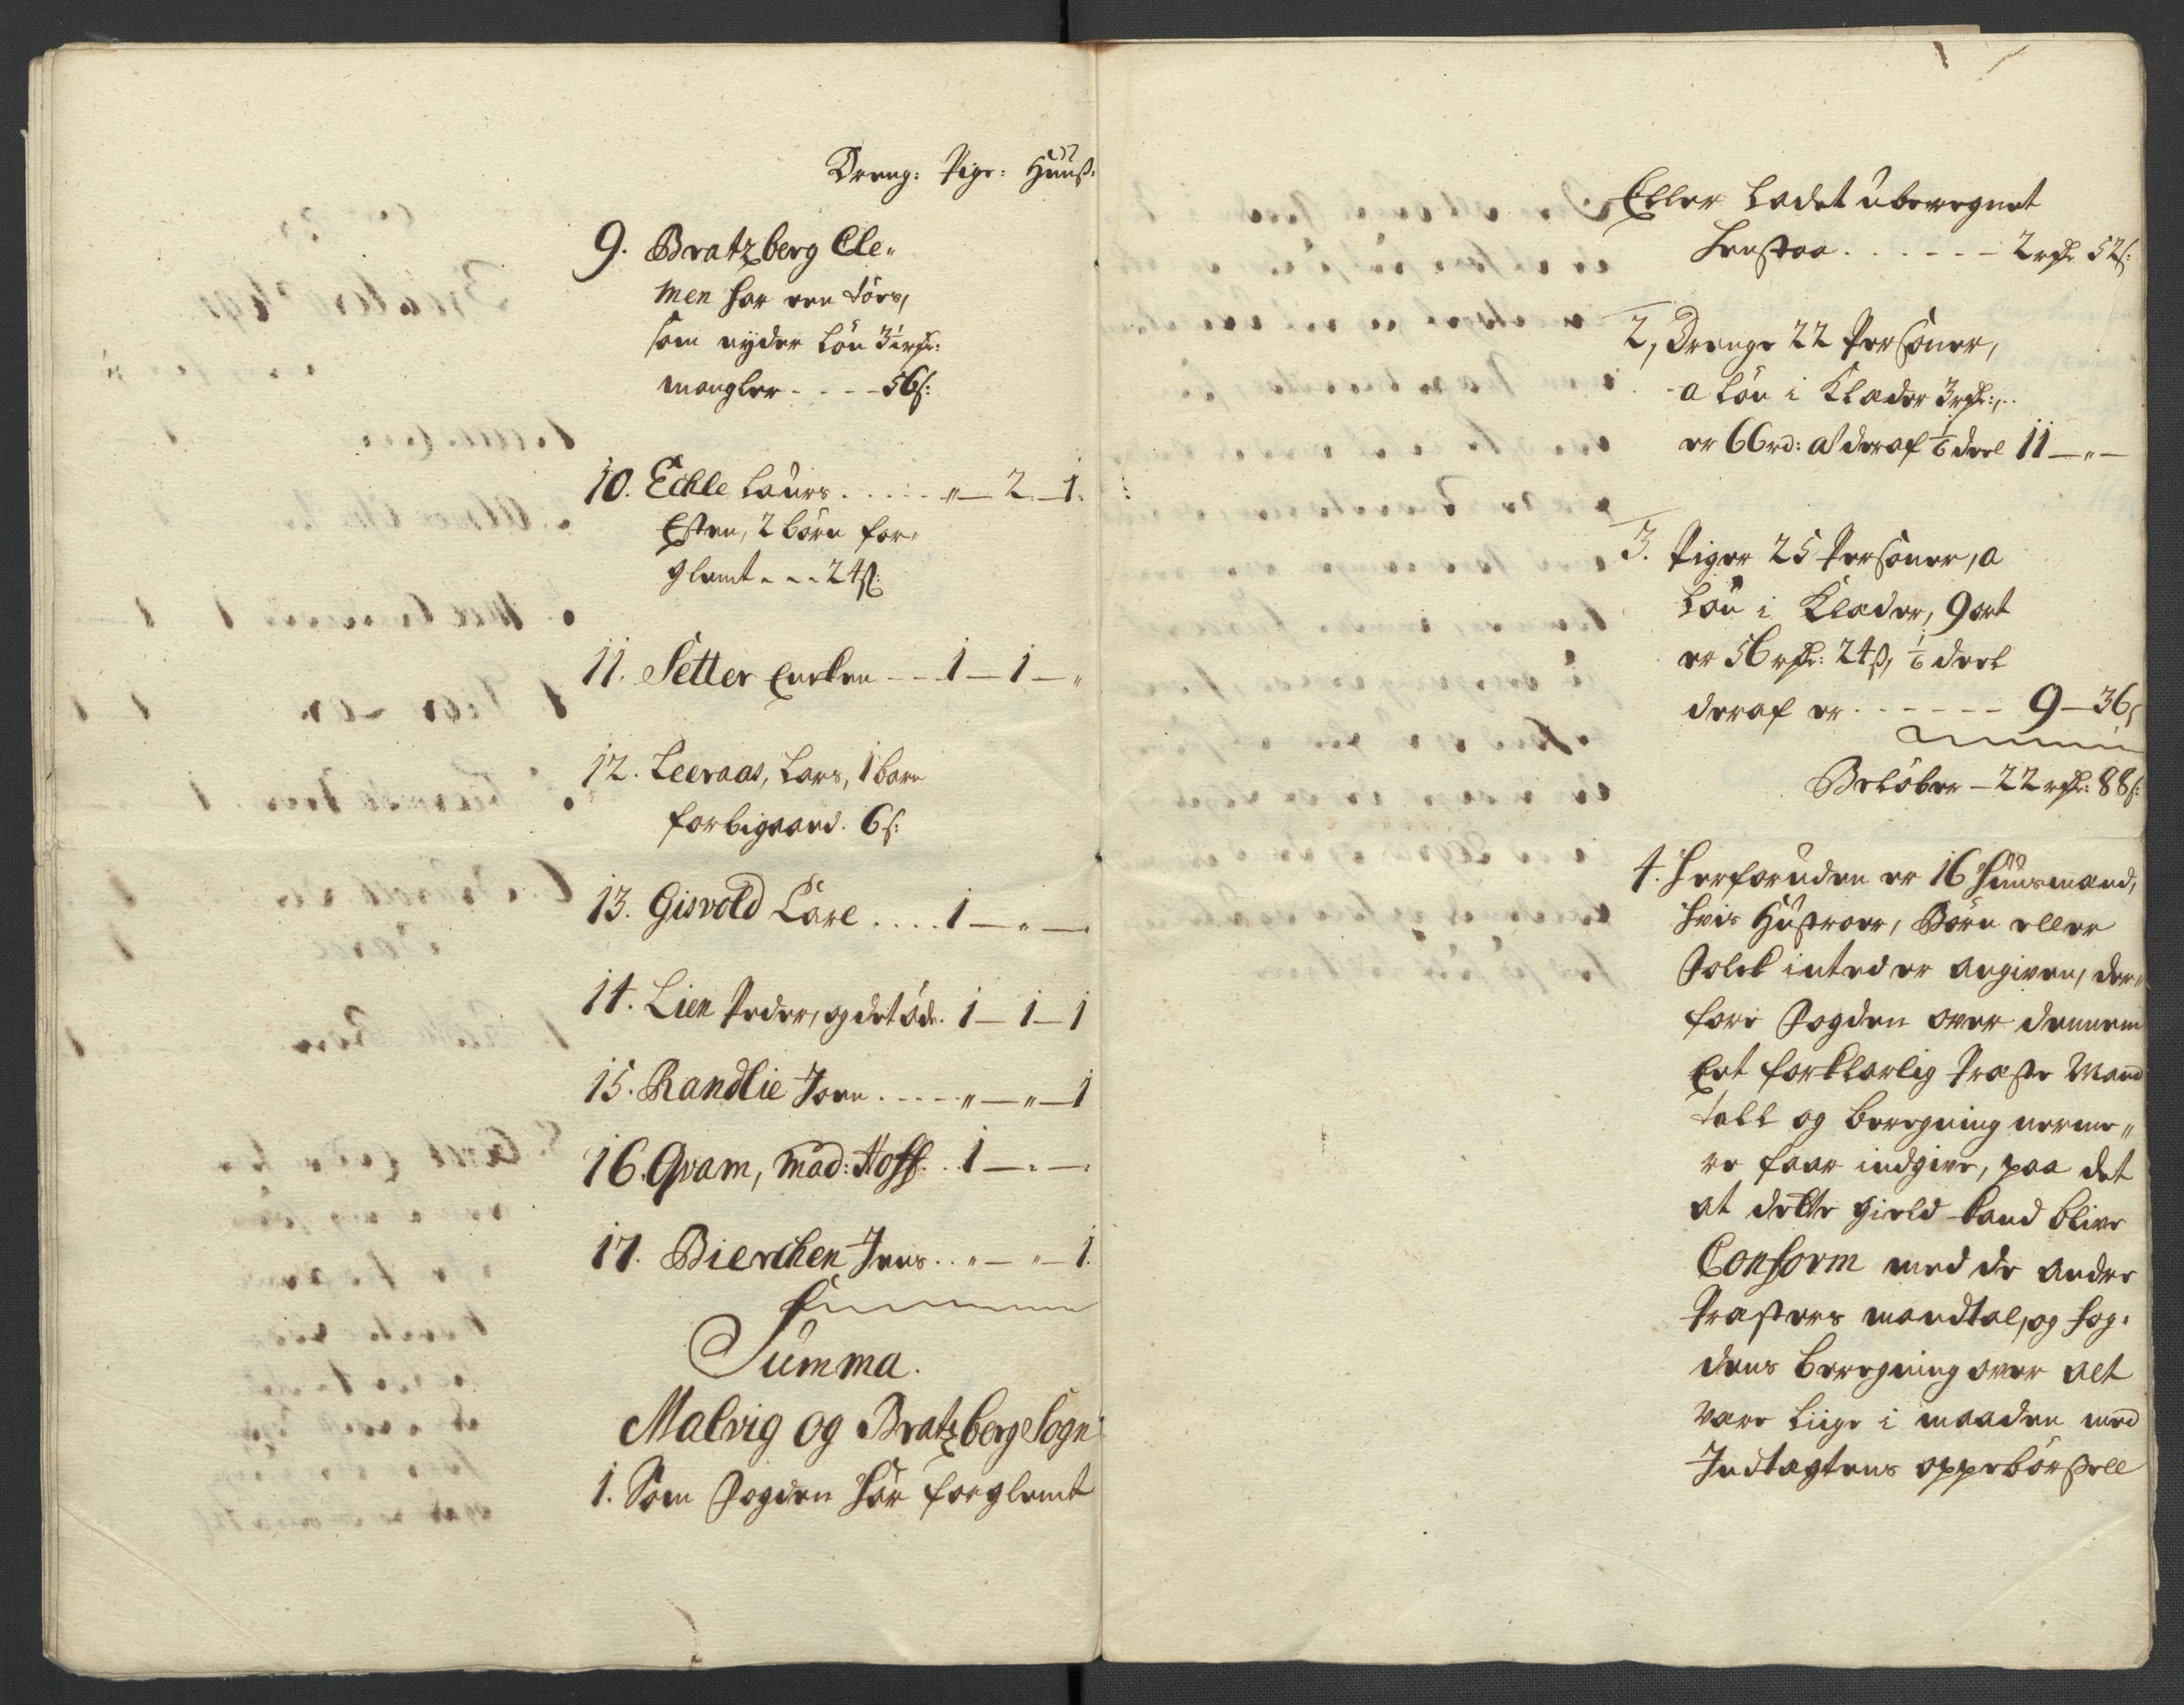 Dreng: Pige: Huuß:
9. Bratzberg Cle-
men har een Törs,
som nyder Lön 3½ rdr:
mangler - - - - 56 s:
10. Echle Laurs . . . . . „ — 2 — 1.
Esten, 2 börn for-
glemt - - - 24 ß:
11. Setter Encken - - - 1 — 1 — „
12. Leeraas, Lars, 1 barn
forbigaaed. 6 s:
13. Gisvold Lare . . . . 1 — „ —
14. Lien Peder, og det öde. 1 — 1 — 1
15. Randlie Joen . - - - „ — „ — 1
16. Qvam, Mad: Hoff. . . 1 — „ —
17. Bierchen Jens . . „ — „ — 1.
Summa.
Malvig og Bratzberg Sogn
1. Som Fogden har forglemt
Eller ladet uberegnet
henstaa . . . . . - - 2 rdr 52 s:
2, Drenge 22 Personer,
a Lön i Klæder 3 rdr:,
er 66 rd: a deraf 1/6 deel 11 — „ —
3. Piger 25 Personer, a
Lön i Klæder, 9 ort
er 56 rdr: 24 ß, 1/6 deel
deraf er - - - - - - 9 — 36 s
Belöber — 22 rdr: 88 s:
4. Herforuden er 16 Huusmænd,
hvis Hustroer, Börn eller
Folck inted er angiven, der-
fore Fogden over dennem
Eet forklarlig Præste Mand
tall og beregning nerme-
re faar indgive, paa det
at dette gield kand blive
Conform med de andre
Præsters mandtal, og fog-
dens beregning over alt
være liige i maaden med
Indtagtens oppebörsell